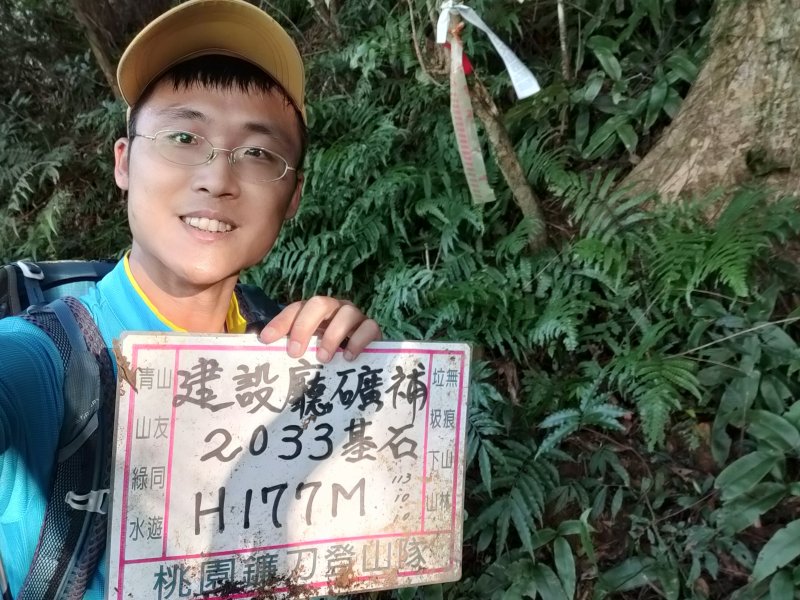 建設廳礦補
2033基石
H177M
113.
10.
10
青山綠水
山友同遊
垃圾下山
無痕山林
桃園鐮刀登山隊